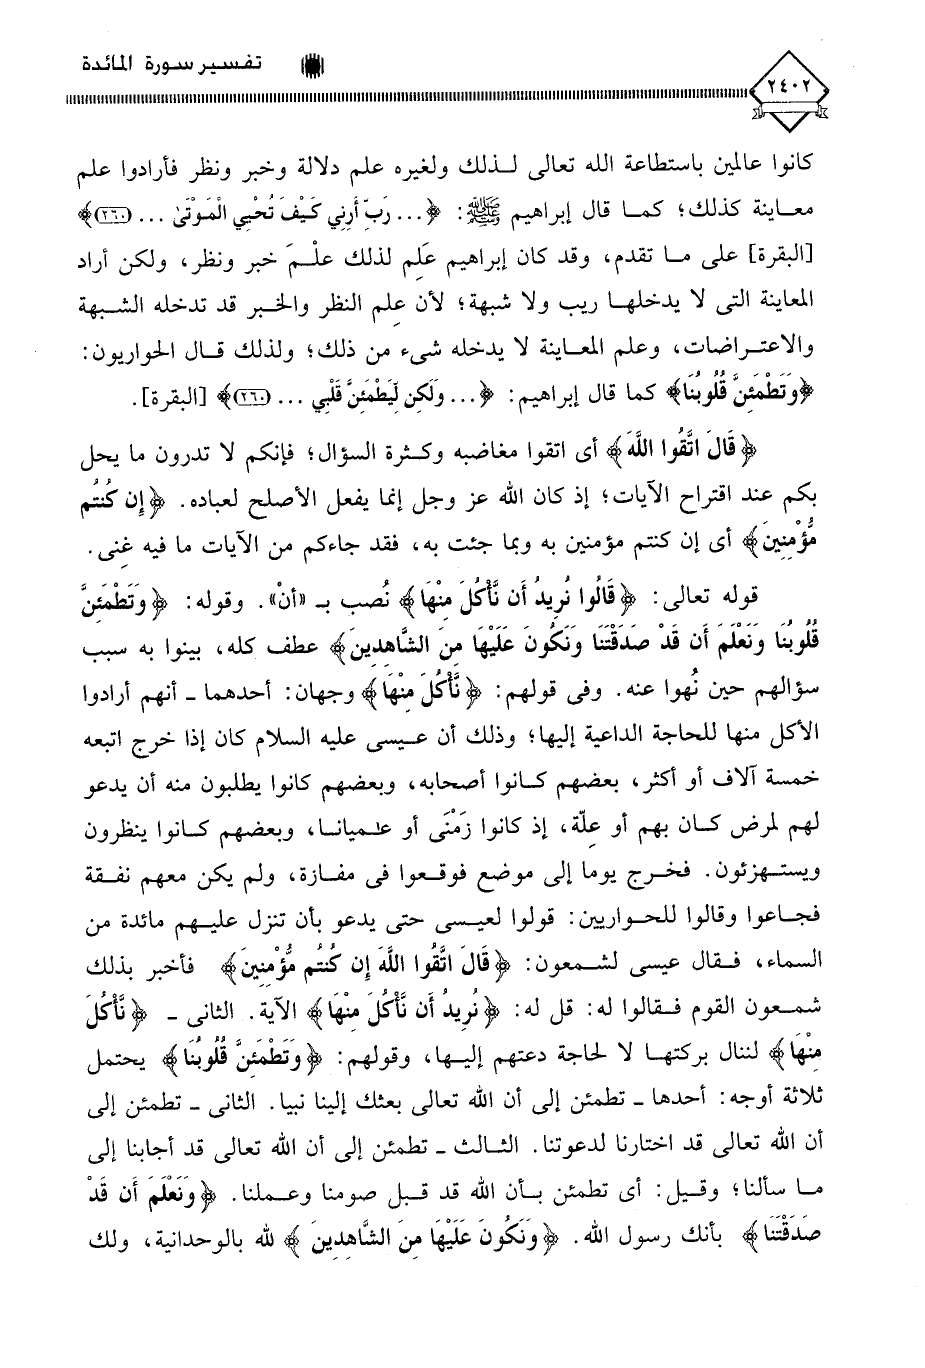 ٢٤٠٢ تفسير سورة المائدة
كانوا عالمين باستطاعة الله تعالى لذلك ولغيره علم دلالة وخبر ونظر فأرادوا علم
معاينة كذلك؛ كما قال إبراهيم ﷺ: ﴿... رَبِّ أَرِنِي كَيْفَ تُحْيِي الْمَوْتَىٰ ... (٢٦٠)﴾
[البقرة] على ما تقدم، وقد كان إبراهيم عَلِم لذلك علْمَ خبر ونظر، ولكن أراد
المعاينة التى لا يدخلها ريب ولا شبهة؛ لأن عِلم النظر والخبر قد تدخله الشبهة
والاعتراضات، وعلم المعاينة لا يدخله شىء من ذلك؛ ولذلك قال الحواريون:
﴿وَتَطْمَئِنَّ قُلُوبُنَا﴾ كما قال إبراهيم: ﴿... وَلَكِن لِّيَطْمَئِنَّ قَلْبِي ... (٢٦٠)﴾ [البقرة].
﴿قَالَ اتَّقُوا اللَّهَ﴾ أى اتقوا مغاضبه وكثرة السؤال؛ فإنكم لا تدرون ما يحل
بكم عند اقتراح الآيات؛ إذ كان الله عز وجل إنما يفعل الأصلح لعباده. ﴿إِن كُنتُم
مُّؤْمِنِينَ﴾ أى إن كنتم مؤمنين به وبما جئت به، فقد جاءكم من الآيات ما فيه غنى.
قوله تعالى: ﴿قَالُوا نُرِيدُ أَن نَّأْكُلَ مِنْهَا﴾ نُصب بـ «أنْ». وقوله: ﴿وَتَطْمَئِنَّ
قُلُوبُنَا وَنَعْلَمَ أَن قَدْ صَدَقْتَنَا وَنَكُونَ عَلَيْهَا مِنَ الشَّاهِدِينَ﴾ عطف كله، بينوا به سبب
سؤالهم حين نُهوا عنه. وفى قولهم: ﴿نَّأْكُلَ مِنْهَا﴾ وجهان: أحدهما ـ أنهم أرادوا
الأكل منها للحاجة الداعية إليها؛ وذلك أن عيسى عليه السلام كان إذا خرج اتبعه
خمسة آلاف أو أكثر، بعضهم كانوا أصحابه، وبعضهم كانوا يطلبون منه أن يدعو
لهم لمرض كان بهم أو عِلّة، إذ كانوا زَمْنَى أو عميانا، وبعضهم كانوا ينظرون
ويستهزئون. فخرج يوما إلى موضع فوقعوا فى مفازة، ولم يكن معهم نفقة
فجاعوا وقالوا للحواريين: قولوا لعيسى حتى يدعو بأن تنزل عليهم مائدة من
السماء، فقال عيسى لشمعون: ﴿قَالَ اتَّقُوا اللَّهَ إِن كُنتُم مُّؤْمِنِينَ﴾ فأخبر بذلك
شمعون القوم فقالوا له: قل له: ﴿نُرِيدُ أَن نَّأْكُلَ مِنْهَا﴾ الآية. الثانى ـ ﴿نَّأْكُلَ
مِنْهَا﴾ لننال بركتها لا لحاجة دعتهم إليها، وقولهم: ﴿وَتَطْمَئِنَّ قُلُوبُنَا﴾ يحتمل
ثلاثة أوجه: أحدها ـ تطمئن إلى أن الله تعالى بعثك إلينا نبيا. الثانى ـ تطمئن إلى
أن الله تعالى قد اختارنا لدعوتنا. الثالث ـ تطمئن إلى أن الله تعالى قد أجابنا إلى
ما سألنا؛ وقيل: أى تطمئن بأن الله قد قبل صومنا وعملنا. ﴿وَنَعْلَمَ أَن قَدْ
صَدَقْتَنَا﴾ بأنك رسول الله. ﴿وَنَكُونَ عَلَيْهَا مِنَ الشَّاهِدِينَ﴾ لله بالوحدانية، ولك